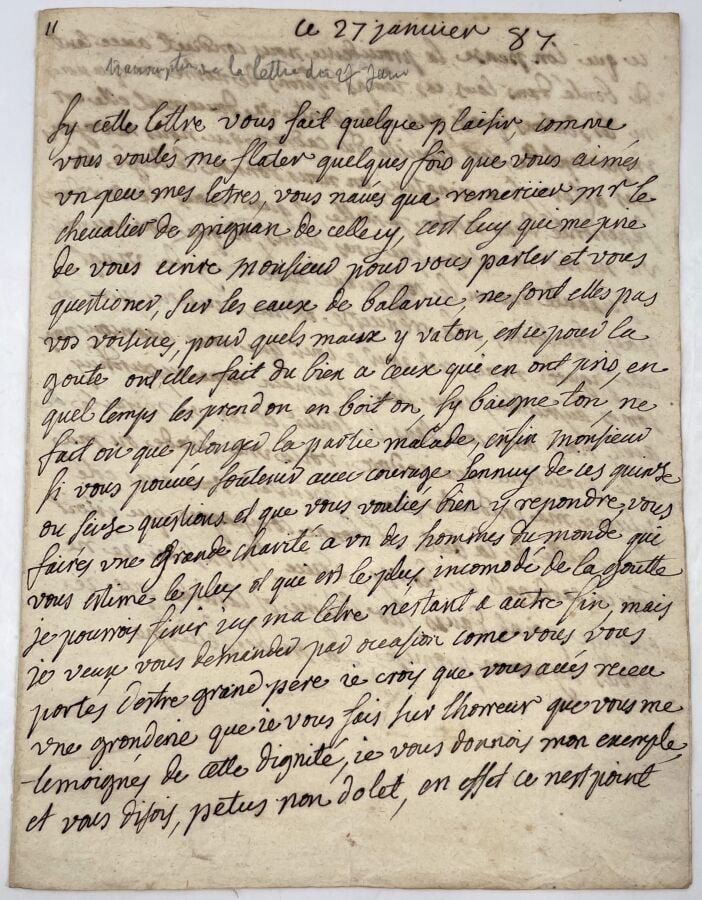 11
ce 27 janvier 87.
transcription de la lettre du 27 janv
Sy cette lettre vous fait quelque plaisir, comme
vous voulés me flater quelques fois que vous aimés
un peu mes letres, vous navés qua remercier mr le
chevalier de grignan de celle cy, cest luy qui me prie
de vous ecrire monsieur pour vous parler et vous
questioner, sur les eaux de balaruc, ne sont elles pas
vos voisines, pour quels maux y va ton, est ce pour la
goute ont elles fait du bien a ceux qui en ont pris, en
quel temps les prend on en boit on, sy baigne ton, ne
fait on que plonger la partie malade, enfin monsieur
si vous pouvés soutenir avec courage lennuy de ces quinse
ou seise questions et que vous vouliés bien y repondre, vous
fairés une grande charité a un des hommes du monde qui
vous estime le plus et qui est le plus incomodé de la goutte
je pourrois finir icy ma letre nestant a autre fin, mais
je veux vous demander par occasion come vous vous
portés destre grand pere ie crois que vous avés receu
une gronderie que ie vous fais sur lhorreur que vous me
temoignés de cette dignité, ie vous donnois mon exemple
et vous disois, petus non dolet, en effet ce nest point